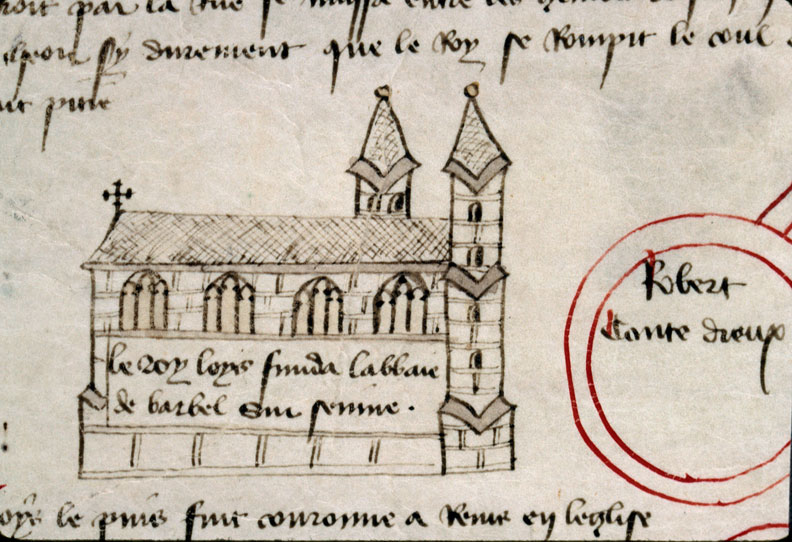 par la rue se entre les
sy durement que le Roy se Rompit le coul
pitie
le roy loys funda labbaie
de barbel sur seinne .
Robert
Conte dreux
loys le puis fut couronne a Reins en leglise